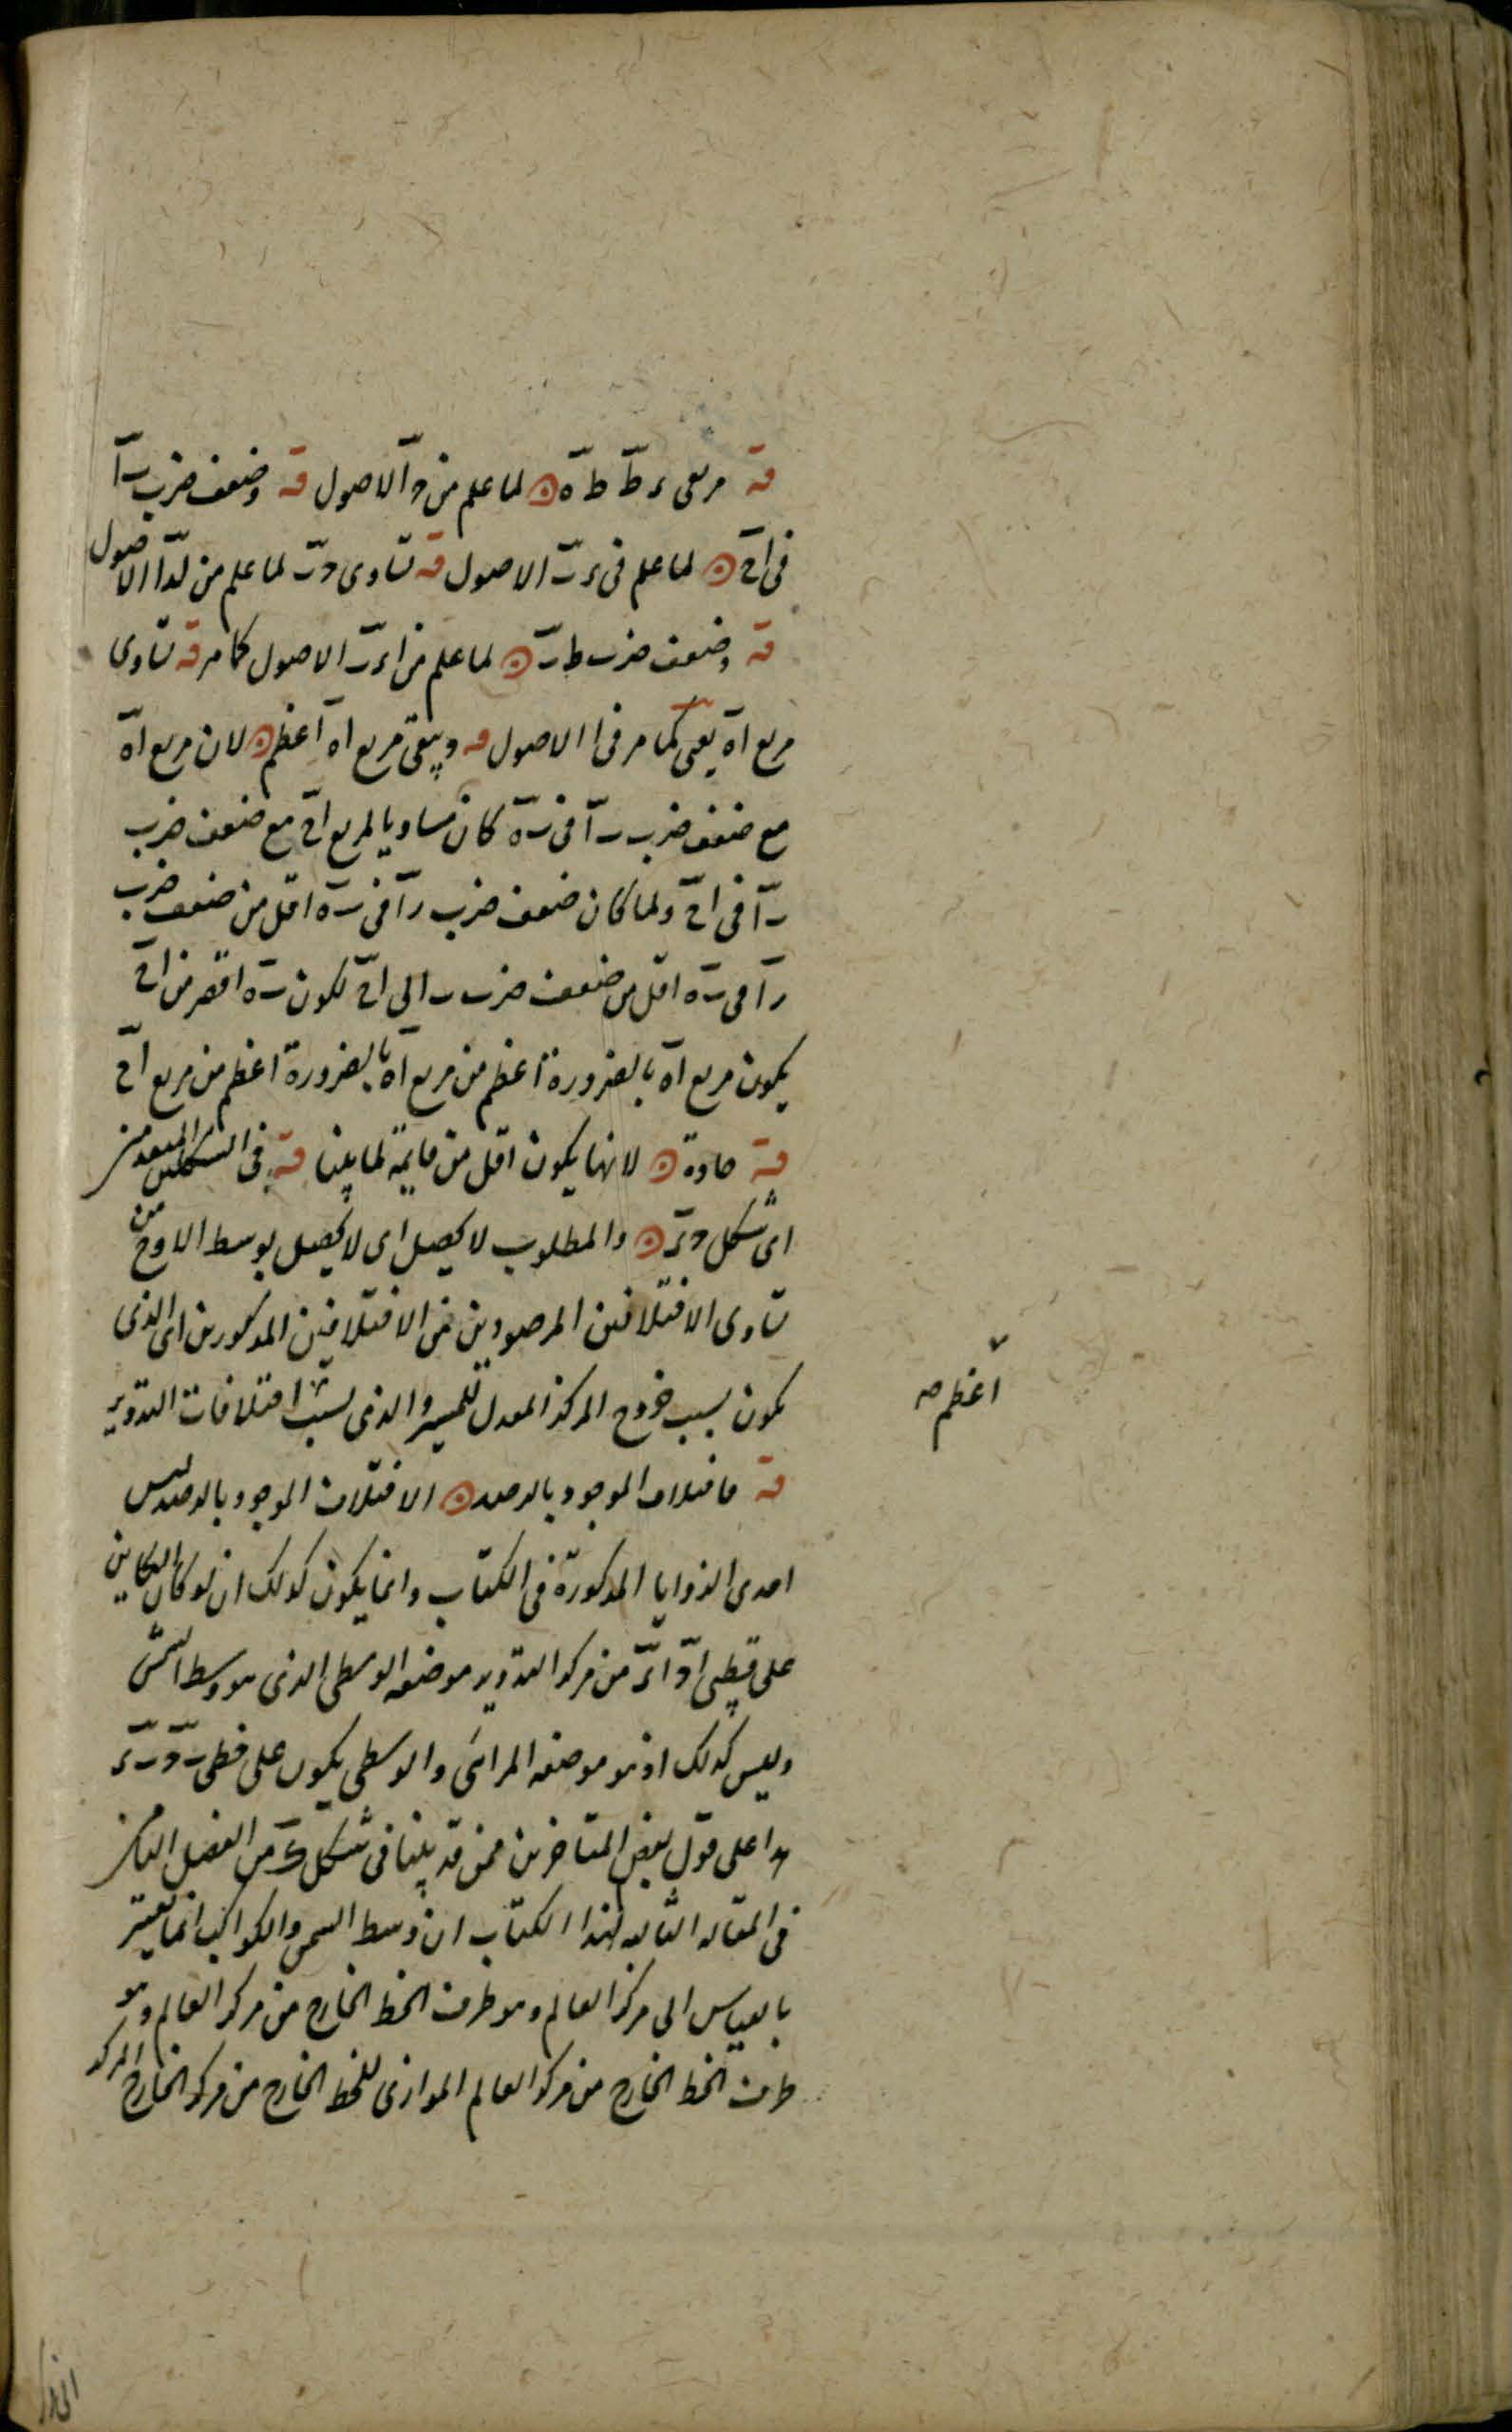 قه مربعی ءط طه لما علم من و الاصول قه وضعف ضرب را
فی اح لما علم فی ءب الاصول قه تساوی لما علم من الاصول
قه وضعف ضرب لما علم من الاصول كما مر قه تساوی
مربع اه یعنی كما مر فی ا الاصول قه ویبقی مربع اه اعظم لان مربع اه
مع ضعف ضرب را فی ره كان مساویا لمربع اح مع ضعف ضرب
را فی اح ولما كان ضعف ضرب را فی ره اقل من ضعف ضرب
را فی ره اقل من ضعف ضرب را لی اح لكون ره اقصر من اح
یكون مربع اه بالضرورة اعظم من مربع اه بالضرورة اعظم من مربع اح
قه حادة لانها یكون اقل من قایمة لما بینا قه فی الشكلین المتقدمین
ای شكل والمطلوب لا یحصل ای لا یحصل بوسط الاوج من
تساوی الاختلافین المرصودین من الاختلافین المذكورین ای الذی
یكون بسبب خروج المركز المعدل للمسیر والذی بسبب اختلافات التدویر
قه فاختلاف الموجود بالرصد الاختلاف الموجود بالرصد لیس
احدی الزوایا المذكورة فی الكتاب وانما یكون كذلك ان لو كان الكاین
علی من مركز التدویر موضعه الوسطی الذی هو وسط الشمس
ولیس كذلك اذ هو موضعه المرائی والوسطی یكون علی خطی
هذا علی قول بعض المتاخرین ممن قد بینا فی شكل من الفصل
فی المقاله الثالثه لهذا الكتاب ان وسط الشمس والكواكب انما یعتبر
بالقیاس الی مركز العالم وهو طرف الخط الخارج من مركز العالم وهو
طرف الخط الخارج من مركز العالم الموازی للخط الخارج من مركز الخارج المركز
اعظم صه